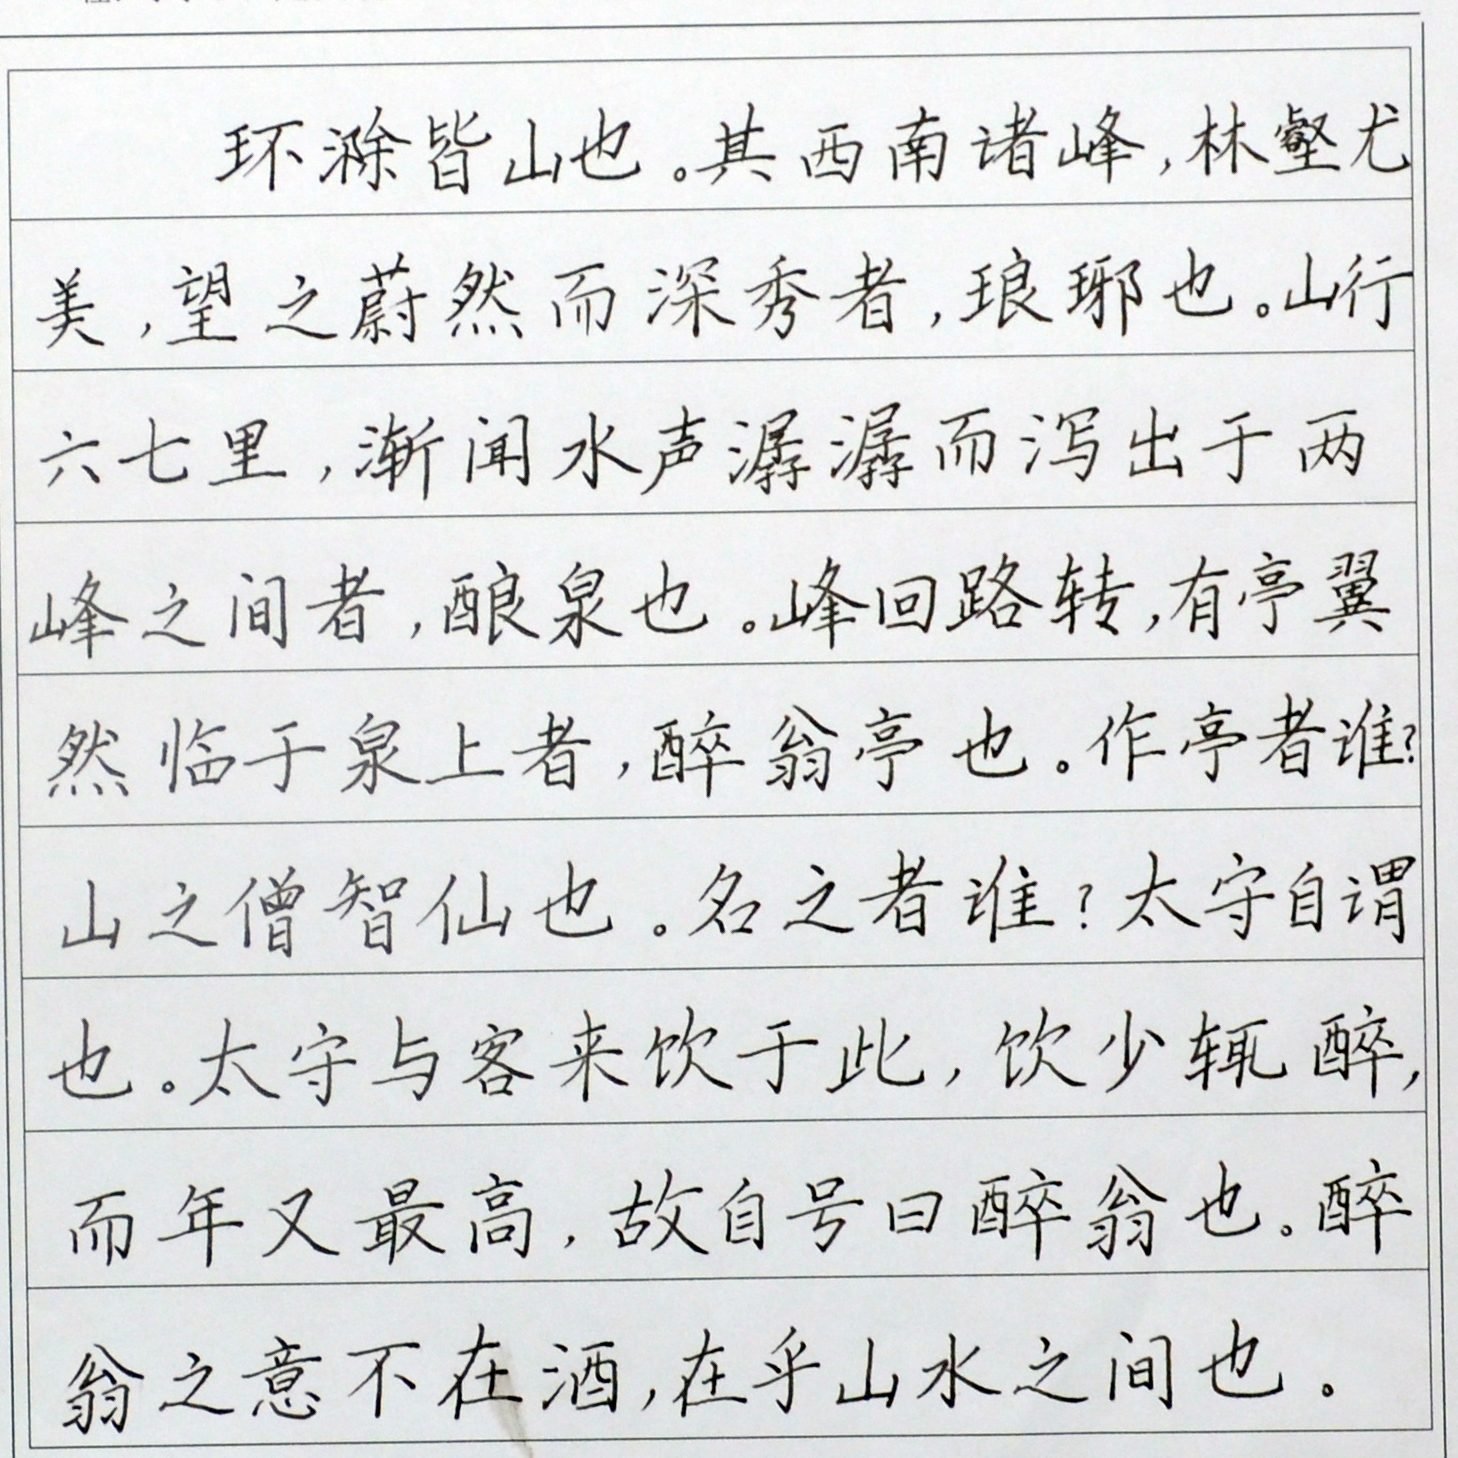 环滁皆山也。其西南诸峰,林壑尤
美,望之蔚然而深秀者,琅琊也。山行
六七里,渐闻水声潺潺而泻出于两
峰之间者,酿泉也。峰回路转,有亭翼
然临于泉上者,醉翁亭也。作亭者谁?
山之僧智仙也。名之者谁?太守自谓
也。太守与客来饮于此,饮少辄醉,
而年又最高,故自号曰醉翁也。醉
翁之意不在酒,在乎山水之间也。